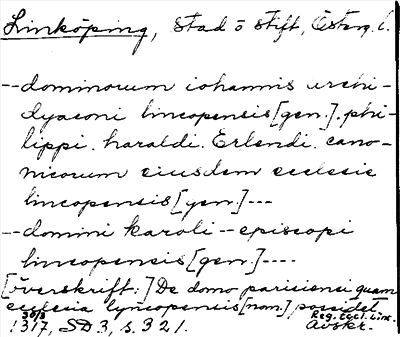 Linköping, Stad o stift, Österg. l.
--dominorum iohannis archi-
dyaconi lincopensis [gen.]. phi-
lippi. haraldi. Erlendi. cano-
nicorum eiusdem ecclesie
lincopensis [gen.]---
--domini karoli--episcopi
lincopensis [gen.]----
[överskrift:] De domo parisiensi quam
ecclesia lyncopensis [nom.] possidet
1317, SD 3, s. 321.
Reg. Eccl. Linc.
Avskr.